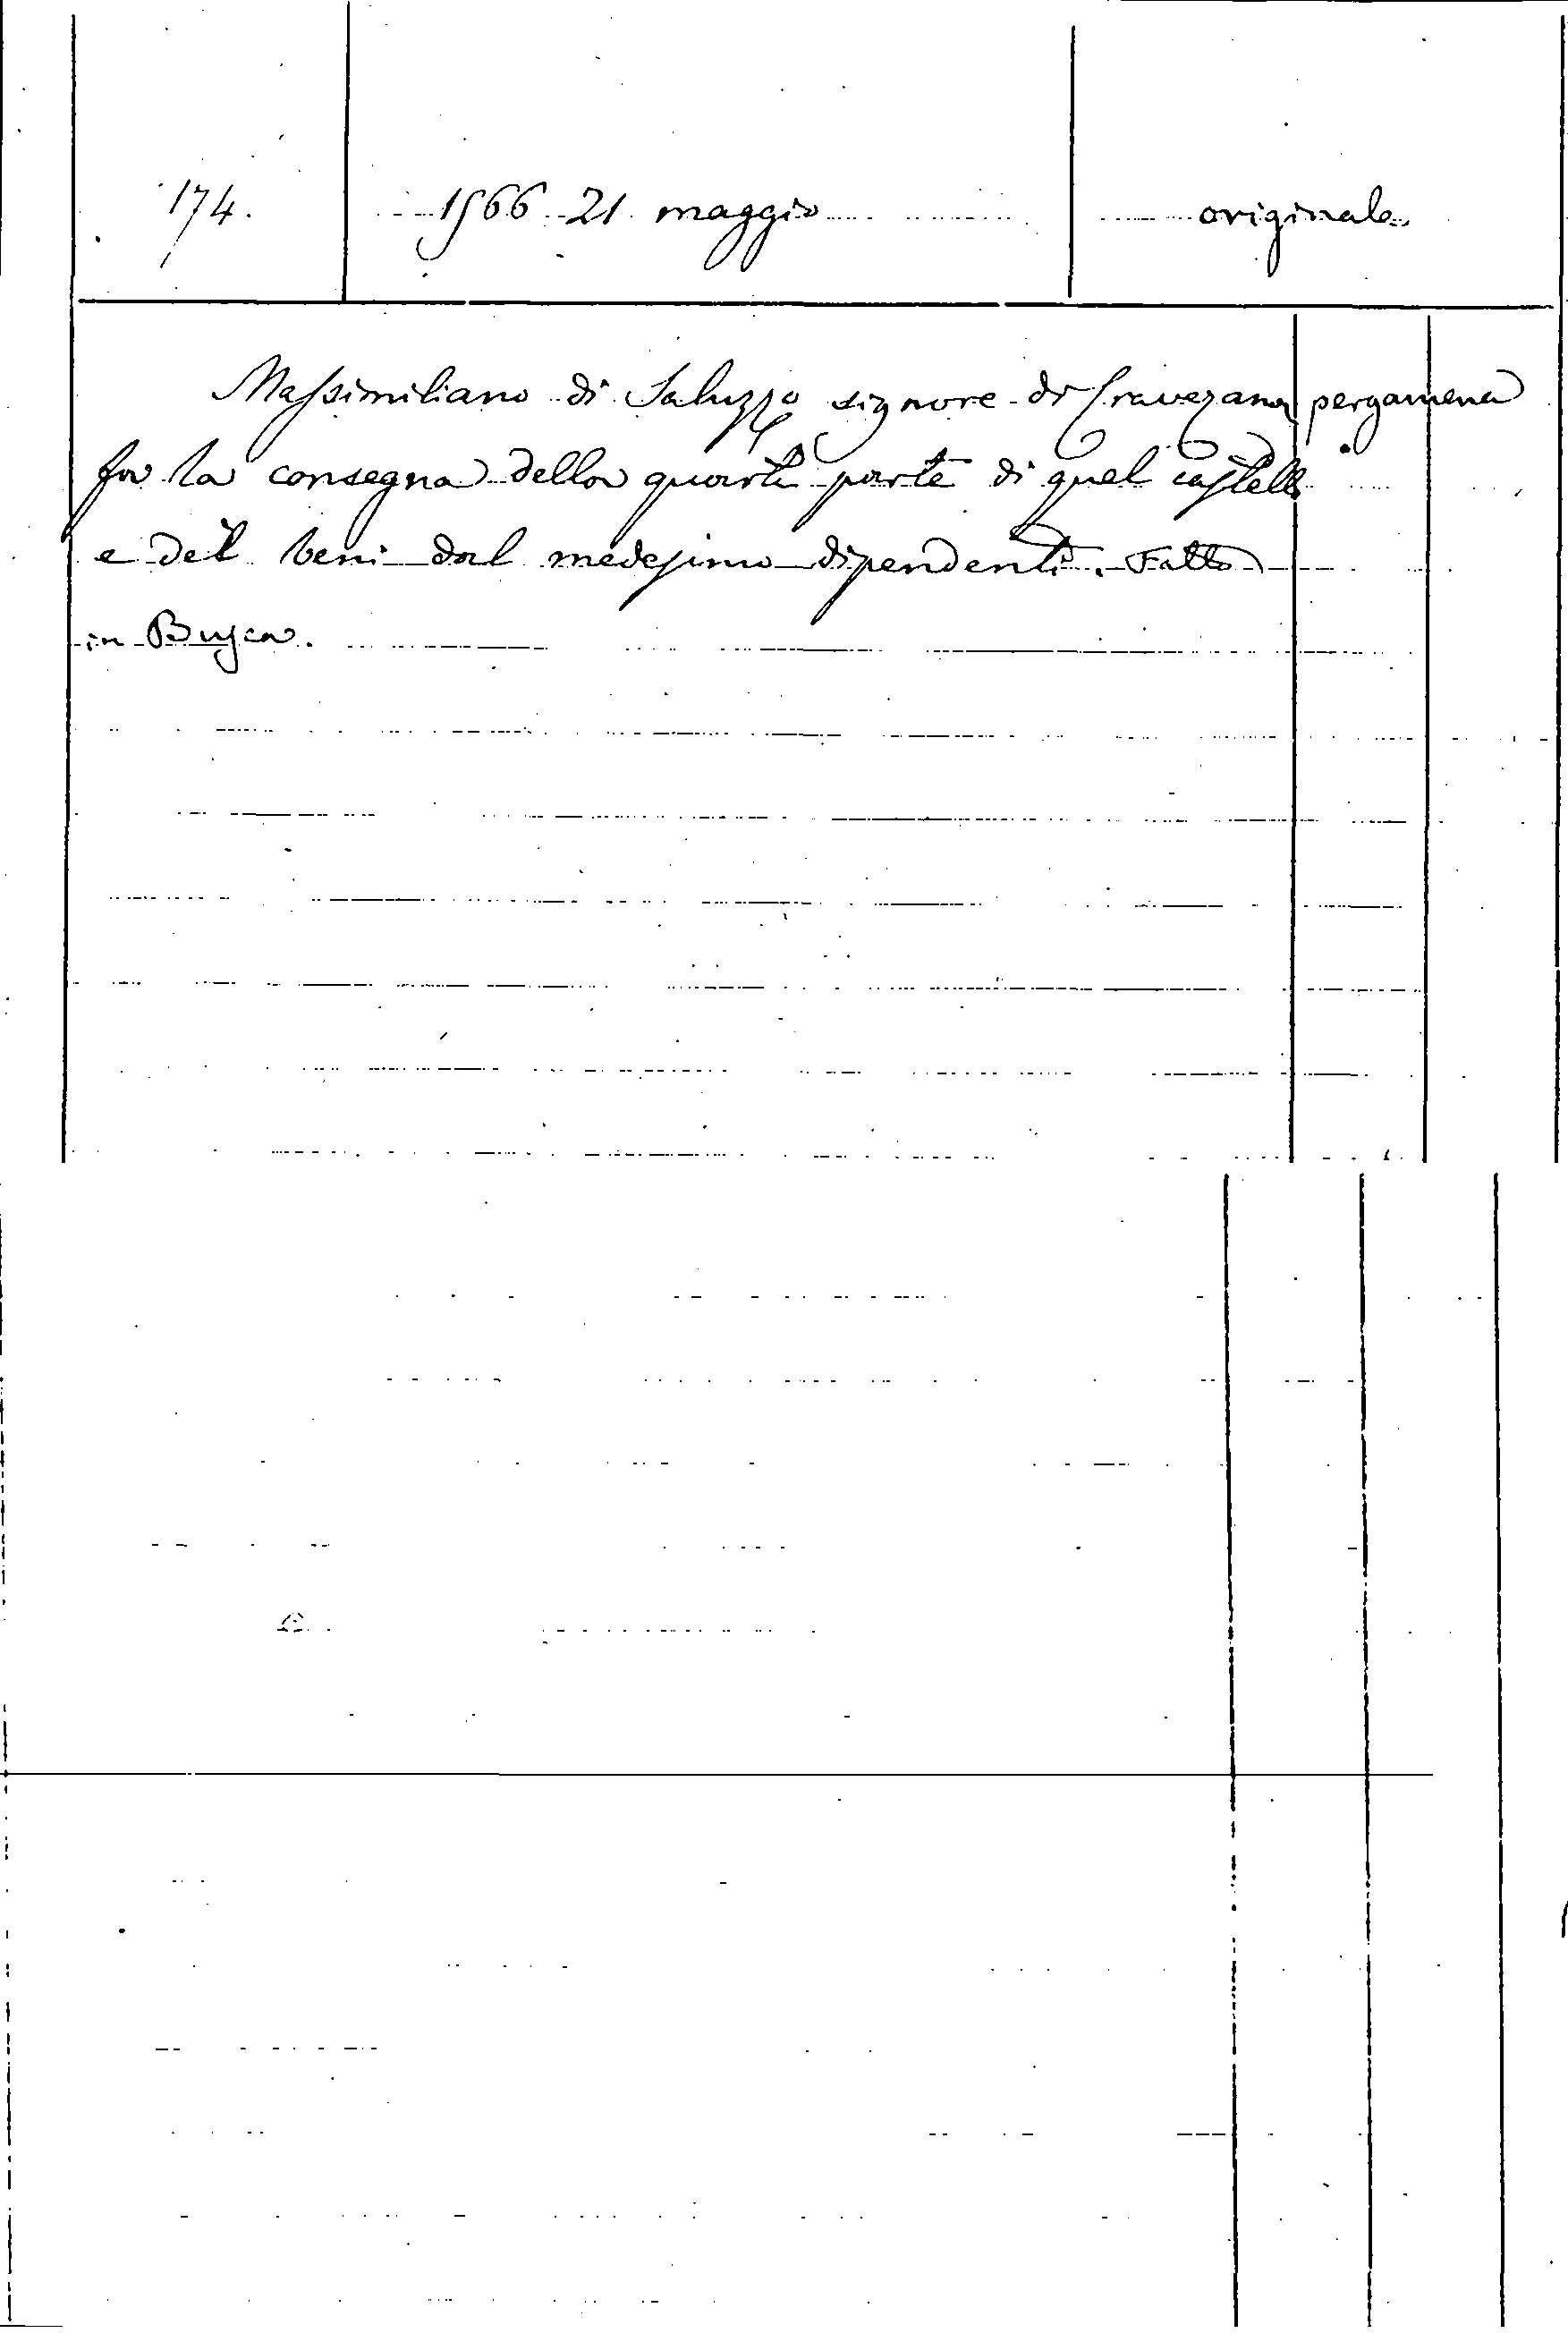 174. 1566 21 maggio originale
Massimiliano di Saluzzo signore di Cravezana pergamena
fa la consegna della quarta parte di quel castello
e dei beni dal medesimo dipendenti. Fatta
in Busca.